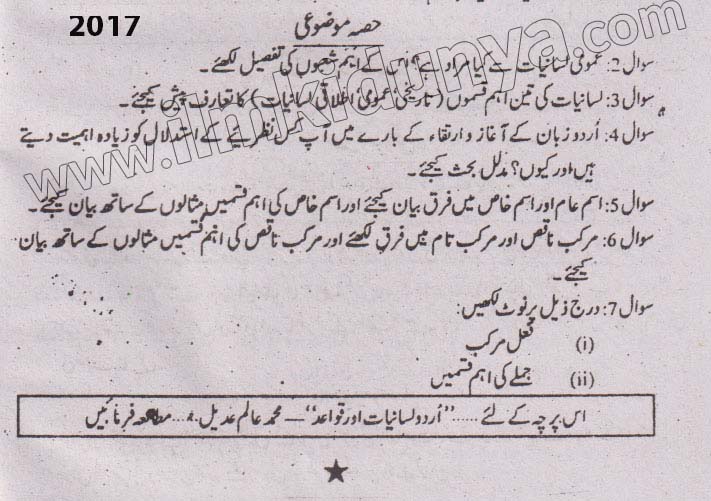 2017
حصہ موضوعی
سوال 2: عمومی لسانیات سے کیا مراد ہے؟ اس کے اہم شعبوں کی تفصیل لکھئے۔
سوال 3: لسانیات کی تین اہم قسموں (تاریخی، عمومی، اطلاقی لسانیات) کا تعارف پیش کیجئے۔
سوال 4: اُردو زبان کے آغاز و ارتقاء کے بارے میں آپ کس نظریے کے استدلال کو زیادہ اہمیت دیتے
ہیں اور کیوں؟ مدلل بحث کیجئے۔
سوال 5: اسم عام اور اسم خاص میں فرق بیان کیجئے اور اسم خاص کی اہم قسمیں مثالوں کے ساتھ بیان کیجئے۔
سوال 6: مرکب ناقص اور مرکب تام میں فرق لکھئے اور مرکب ناقص کی اہم قسمیں مثالوں کے ساتھ بیان
کیجئے۔
سوال 7: درج ذیل پر نوٹ لکھیں:
(i) فعل مرکب
(ii) جملے کی اہم قسمیں
اس پرچہ کے لئے ...... "اُردو لسانیات اور قواعد" — محمد عالم عدیل ... مطالعہ فرمائیں
www.ilmkidunya.com